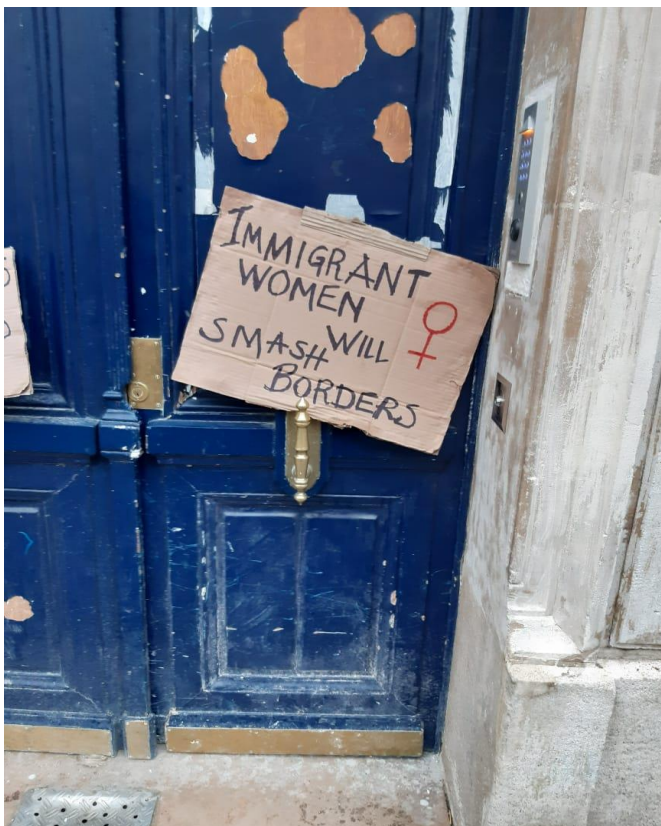 IMMIGRANT
WOMEN
WILL
SMASH
BORDERS